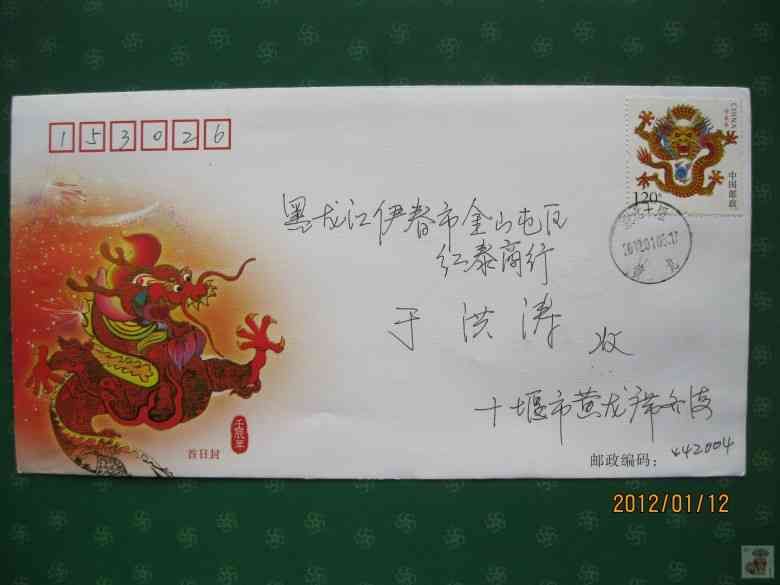 153026
CHINA
中国邮政
120分
黑龙江伊春市金山屯区
红泰商行
于洪涛 收
十堰市黄龙
壬辰年
首日封
邮政编码: 442004
2012/01/12